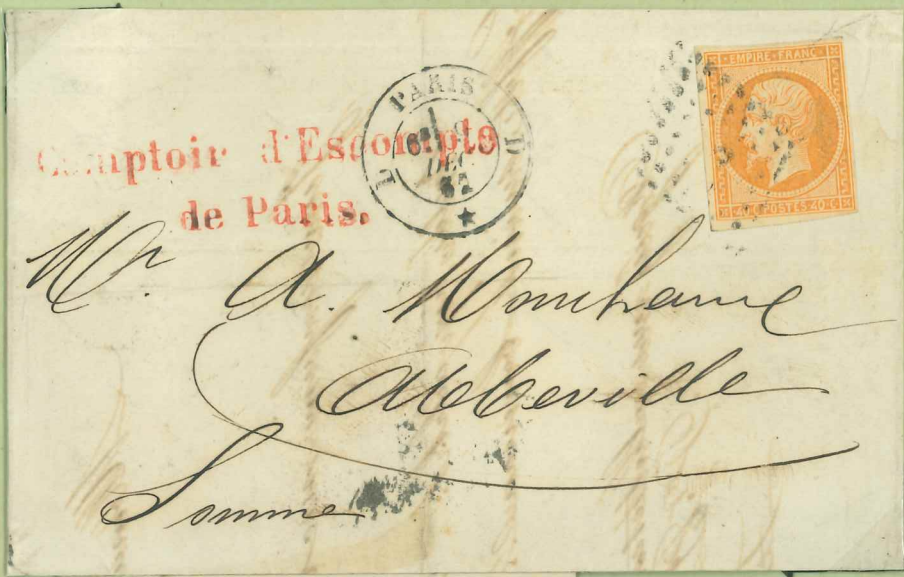 Comptoir d'Escompte
de Paris.
PARIS
L D
DEC
EMPIRE FRANC
40 C POSTES 40 C
Mr. A.
Abbeville
Somme